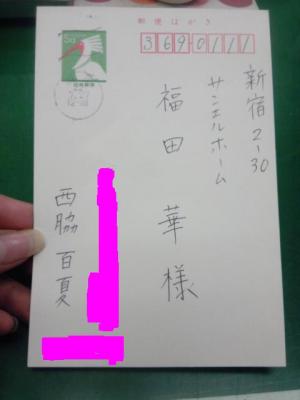 郵便はがき
50
3690111
新宿2-30
サンエルホーム
福田華様
西脇百夏